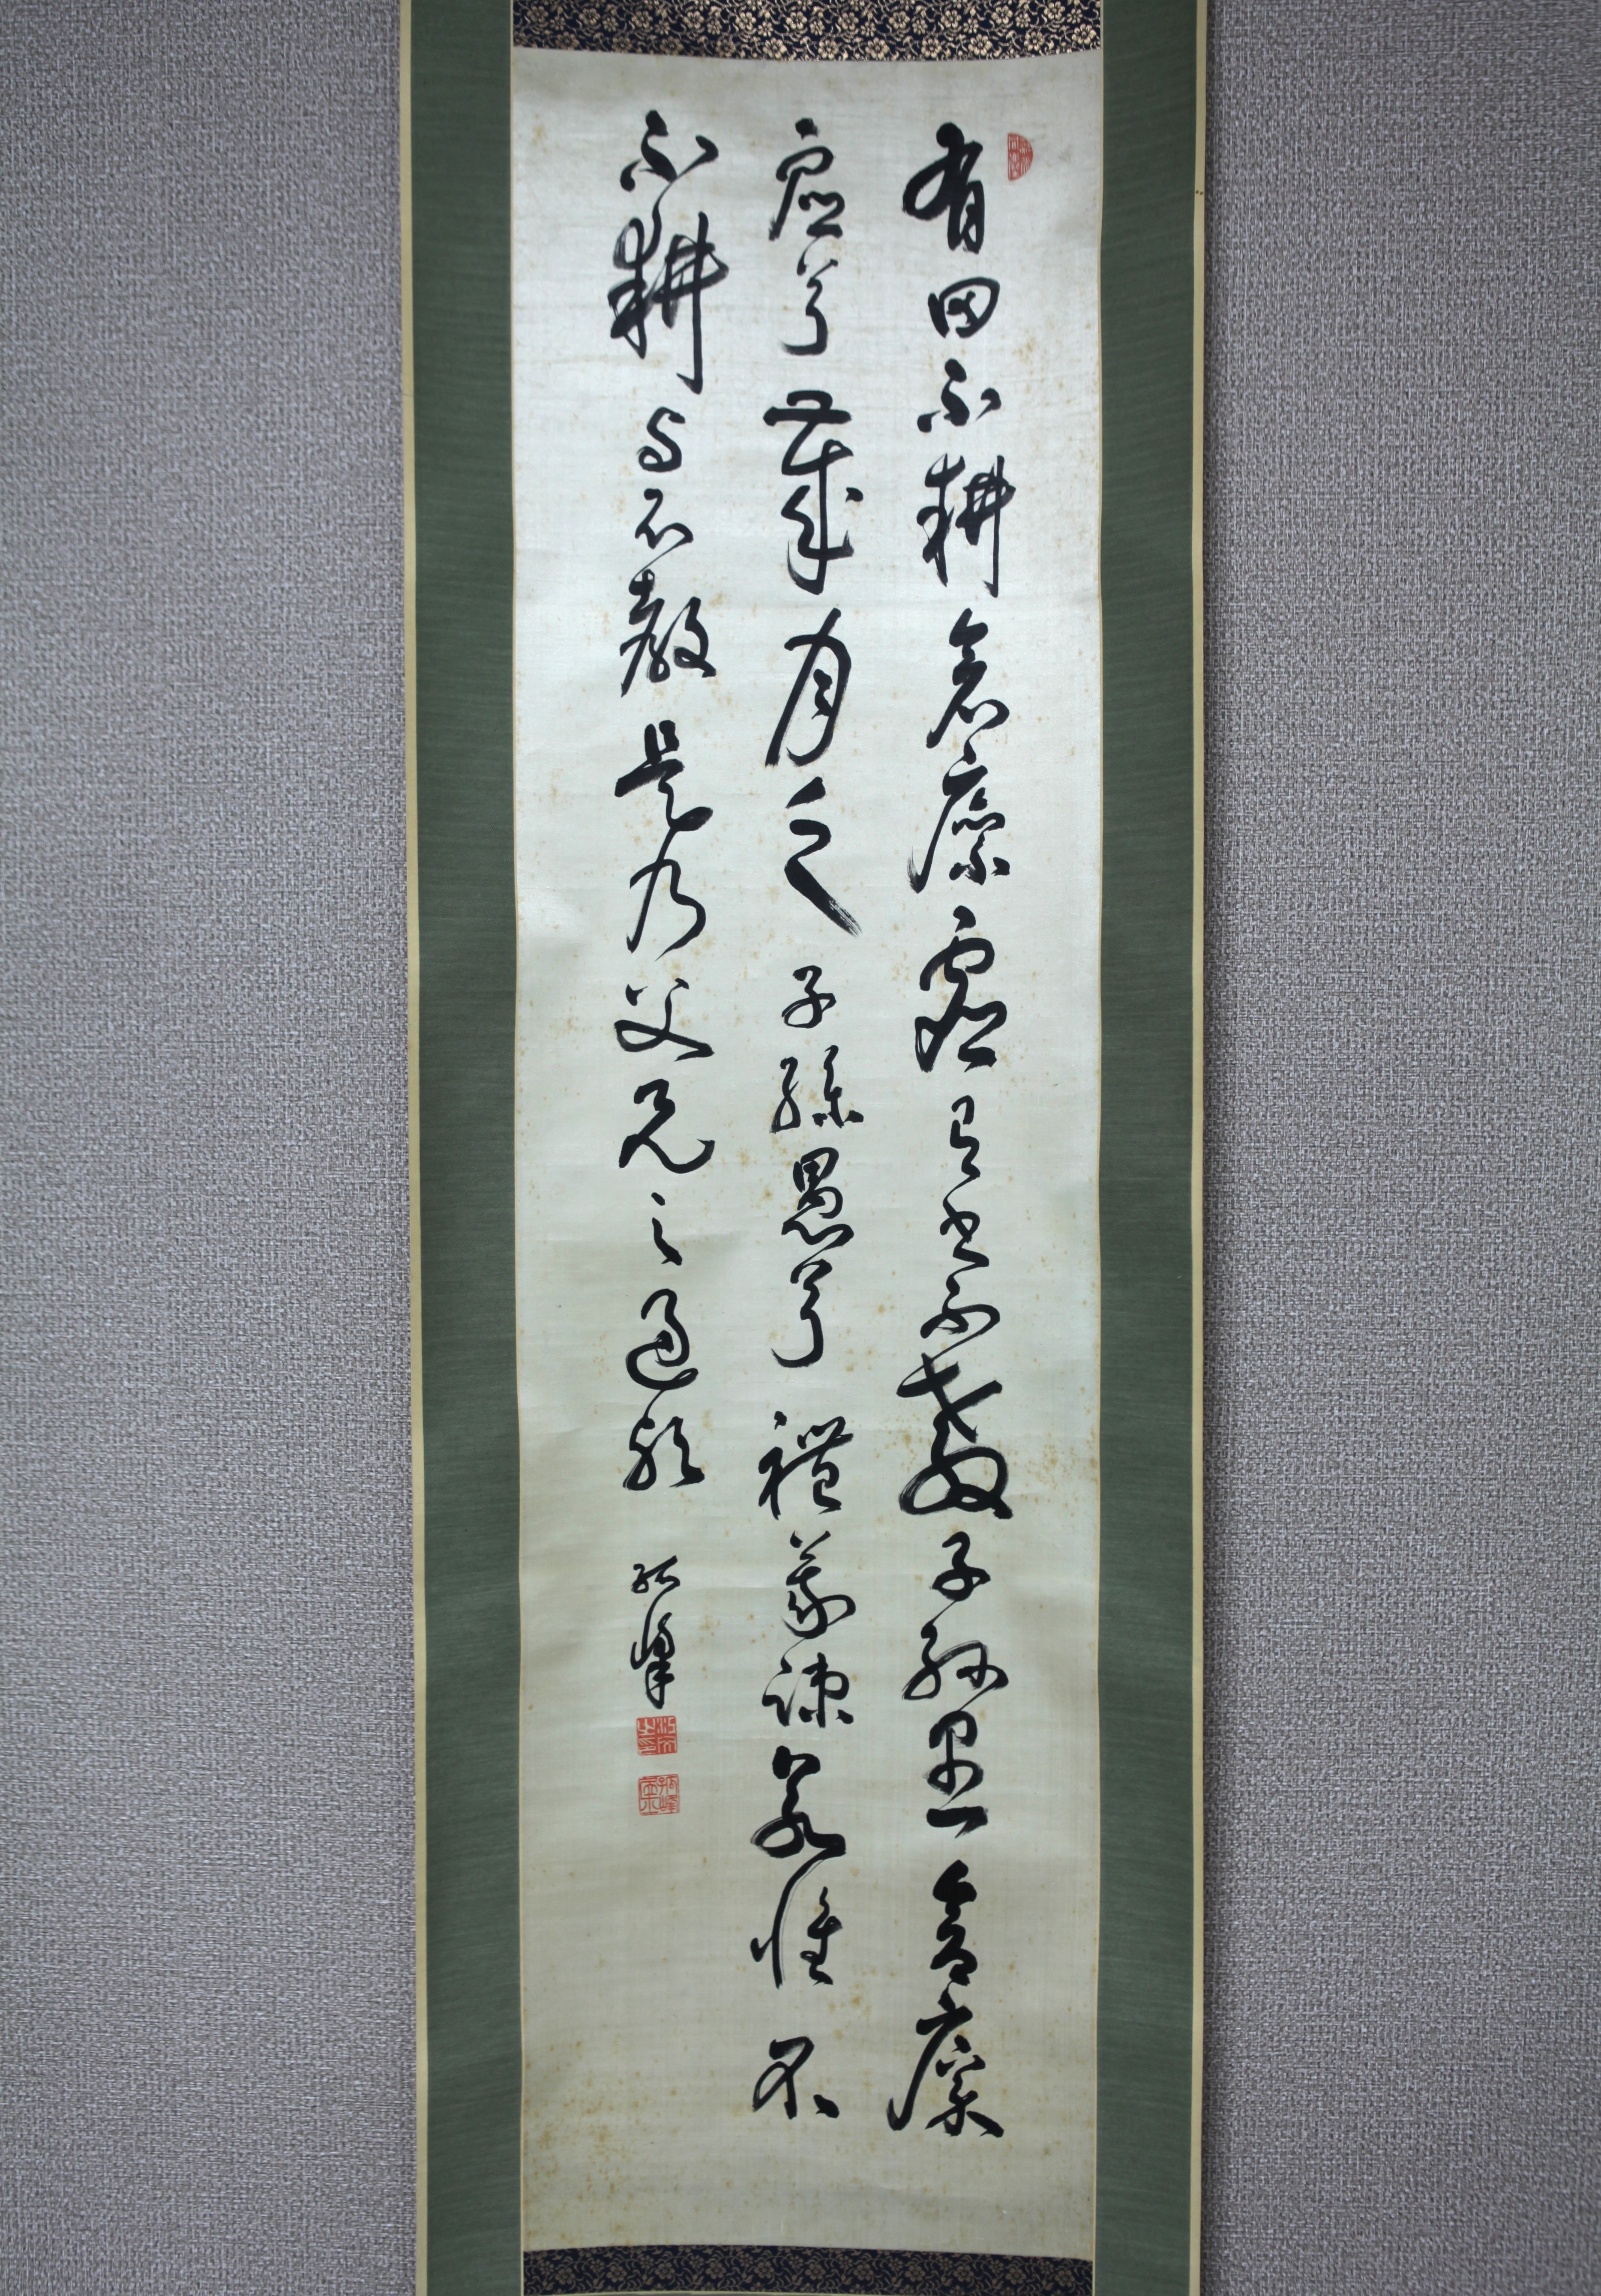 有田不耕倉廩虚有書不教子孫愚倉廩
虚兮歳月乏子孫愚兮禮義疎若惟不
不耕与不教是乃父兄之過歟
孤峯